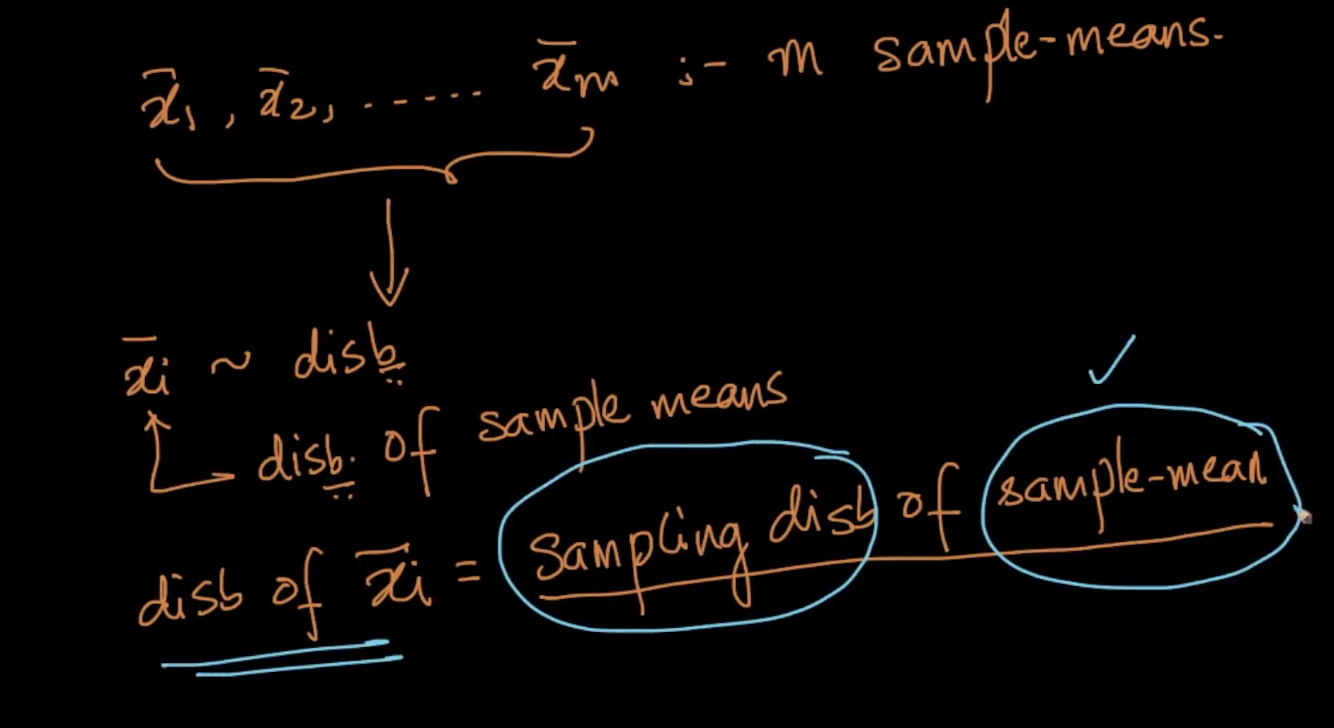 x̄₁, x̄₂, ...... x̄ₘ :- m sample-means.
x̄ᵢ ~ disb
disb. of sample means
disb of x̄ᵢ = Sampling disb of sample-mean